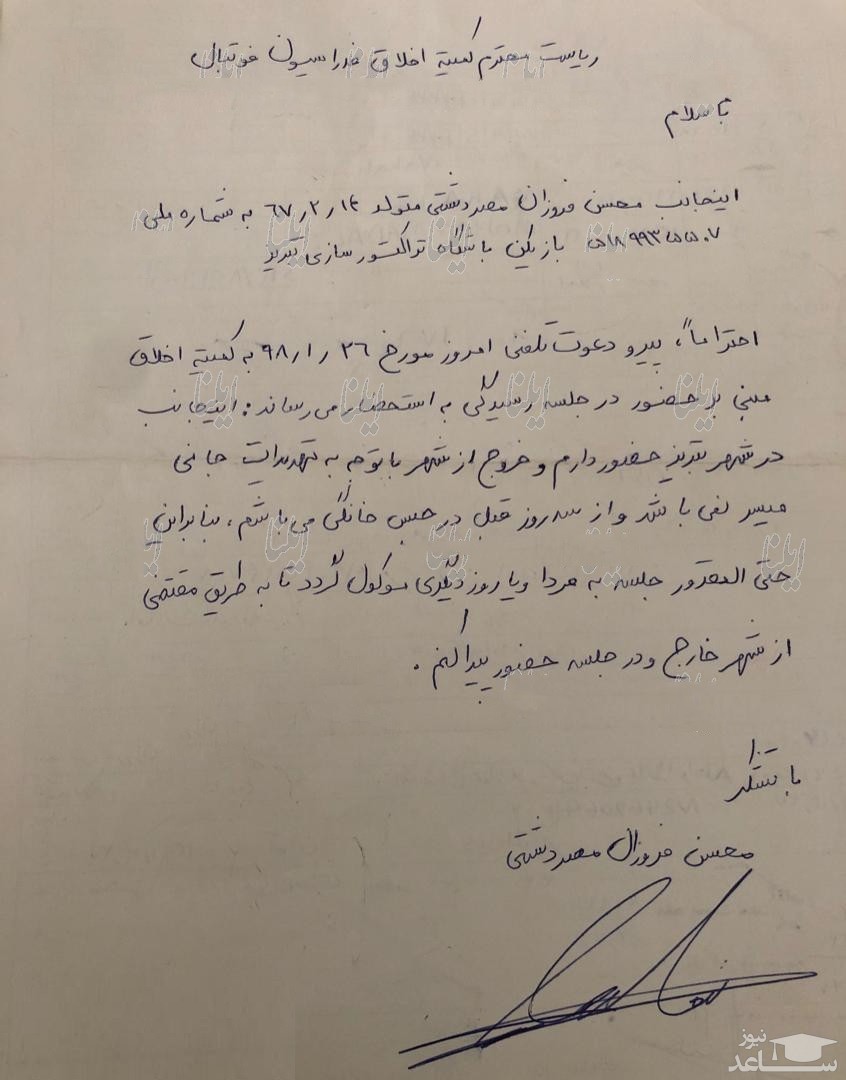 ریاست محترم کمیته اخلاق فدراسیون فوتبال
با سلام
اینجانب محسن فروزان مصردشتی متولد ۶۷٫۲٫۱۴ به شماره ملی
بازیکن باشگاه تراکتور سازی تبریز
احتراماً، پیرو دعوت تلفنی امروز مورخ ۹۸٫۱٫۲۶ به کمیته اخلاق
مبنی بر حضور در جلسه رسیدگی به استحضار می رساند: اینجانب
در شهر تبریز حضور دارم و خروج از شهر با توجه به تهدیدات جانی
میسر نمی باشد و از سه روز قبل در حبس خانگی می باشم، بنابراین
حتی المقدور جلسه به فردا و یا روز دیگری موکول گردد تا به طریق مقتضی
از شهر خارج و در جلسه حضور پیدا کنم.
با تشکر
محسن فروزان مصردشتی
ایلنا
نیوز
ساعد